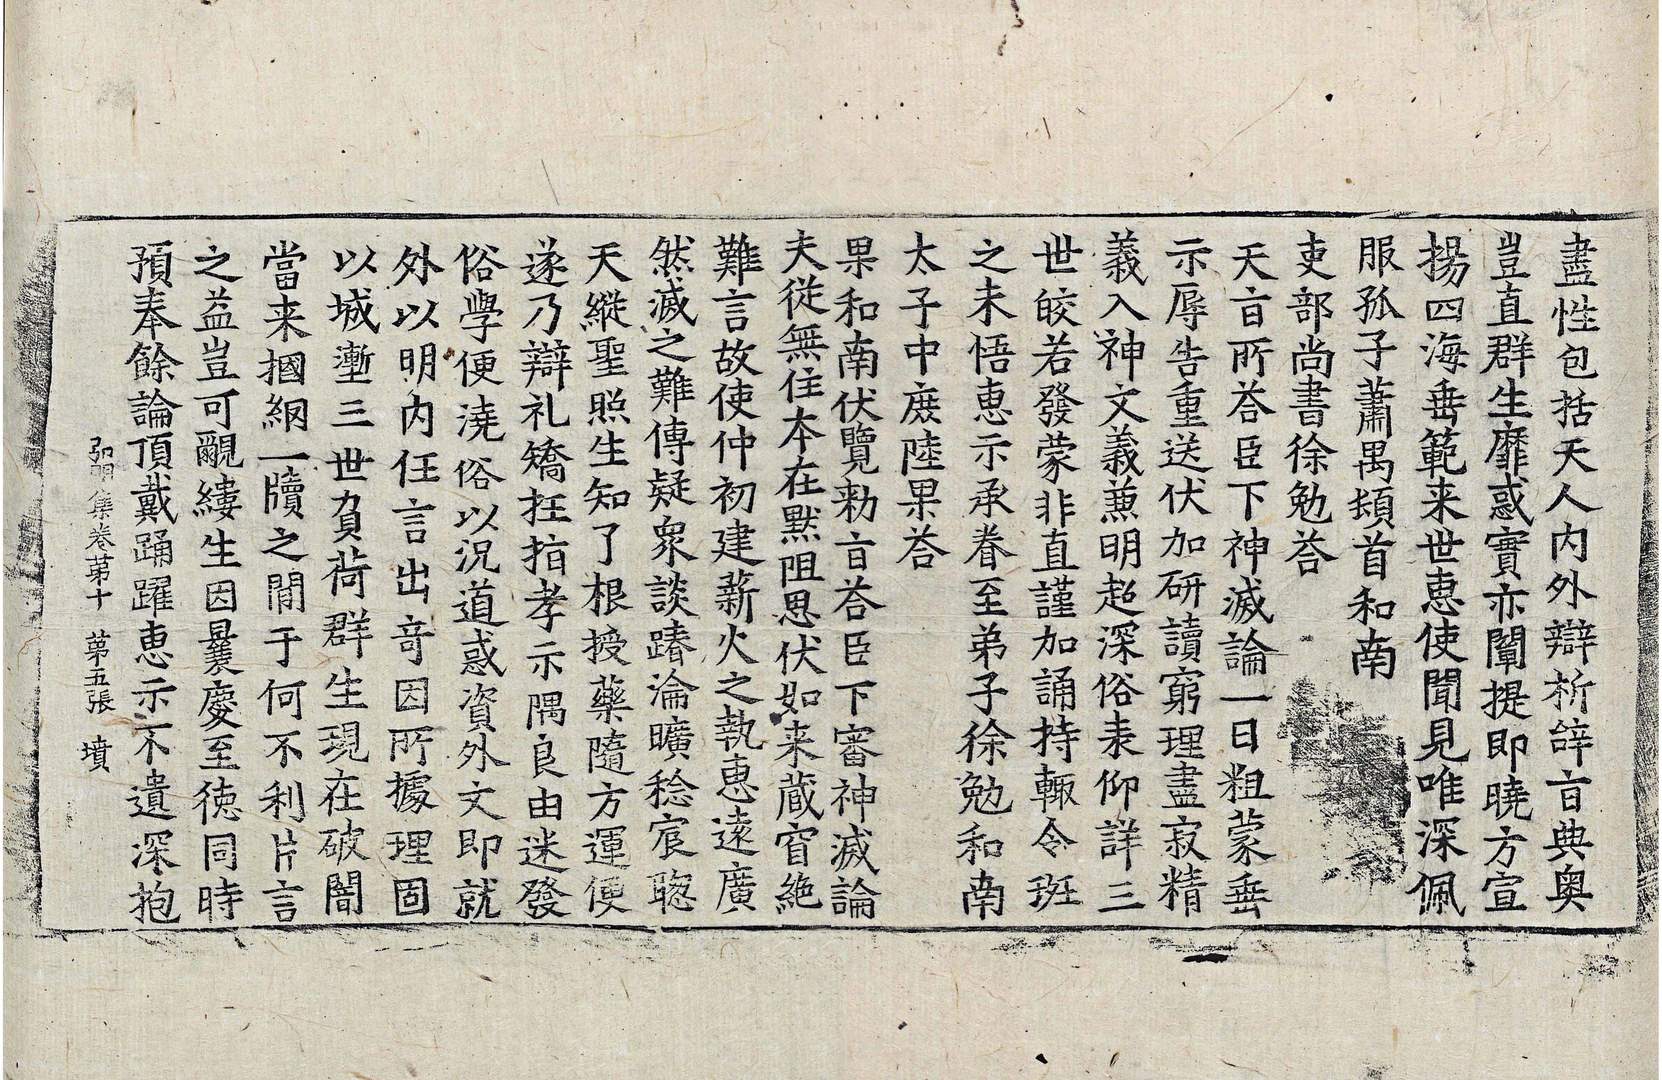 盡性包括天人內外辯析辝旨典奥
豈直群生靡惑實亦闡提即曉方宣
揚四海垂範来世惠使聞見唯深佩
服孤子蕭禺頓首和南
吏部尚書徐勉荅
天旨所荅臣下神滅論一日粗蒙垂
示辱告重送伏加研讀窮理盡寂精
義入神文義兼明超深俗表仰詳三
世皎若發蒙非直謹加誦持輙令班
之未悟惠示承眷至弟子徐勉和南
太子中庶陸果荅
果和南伏覽勑旨荅臣下審神滅論
夫從無住本在默阻思伏如来藏窅絶
難言故使仲初建薪火之執惠遠廣
然滅之難傳疑衆談踳淪曠稔宸聦
天縱聖照生知了根授藥隨方運便
遂乃辯礼矯抂指孝示隅良由迷發
俗學便澆俗以況道惑資外文即就
外以明内任言出奇因所據理固
以城塹三世負荷群生現在破闇
當来摑網一牘之閒于何不利片言
之益豈可覼縷生因曩慶至徳同時
預奉餘論頂戴踊躍惠示不遺深抱
弘明集卷苐十 苐五張 墳